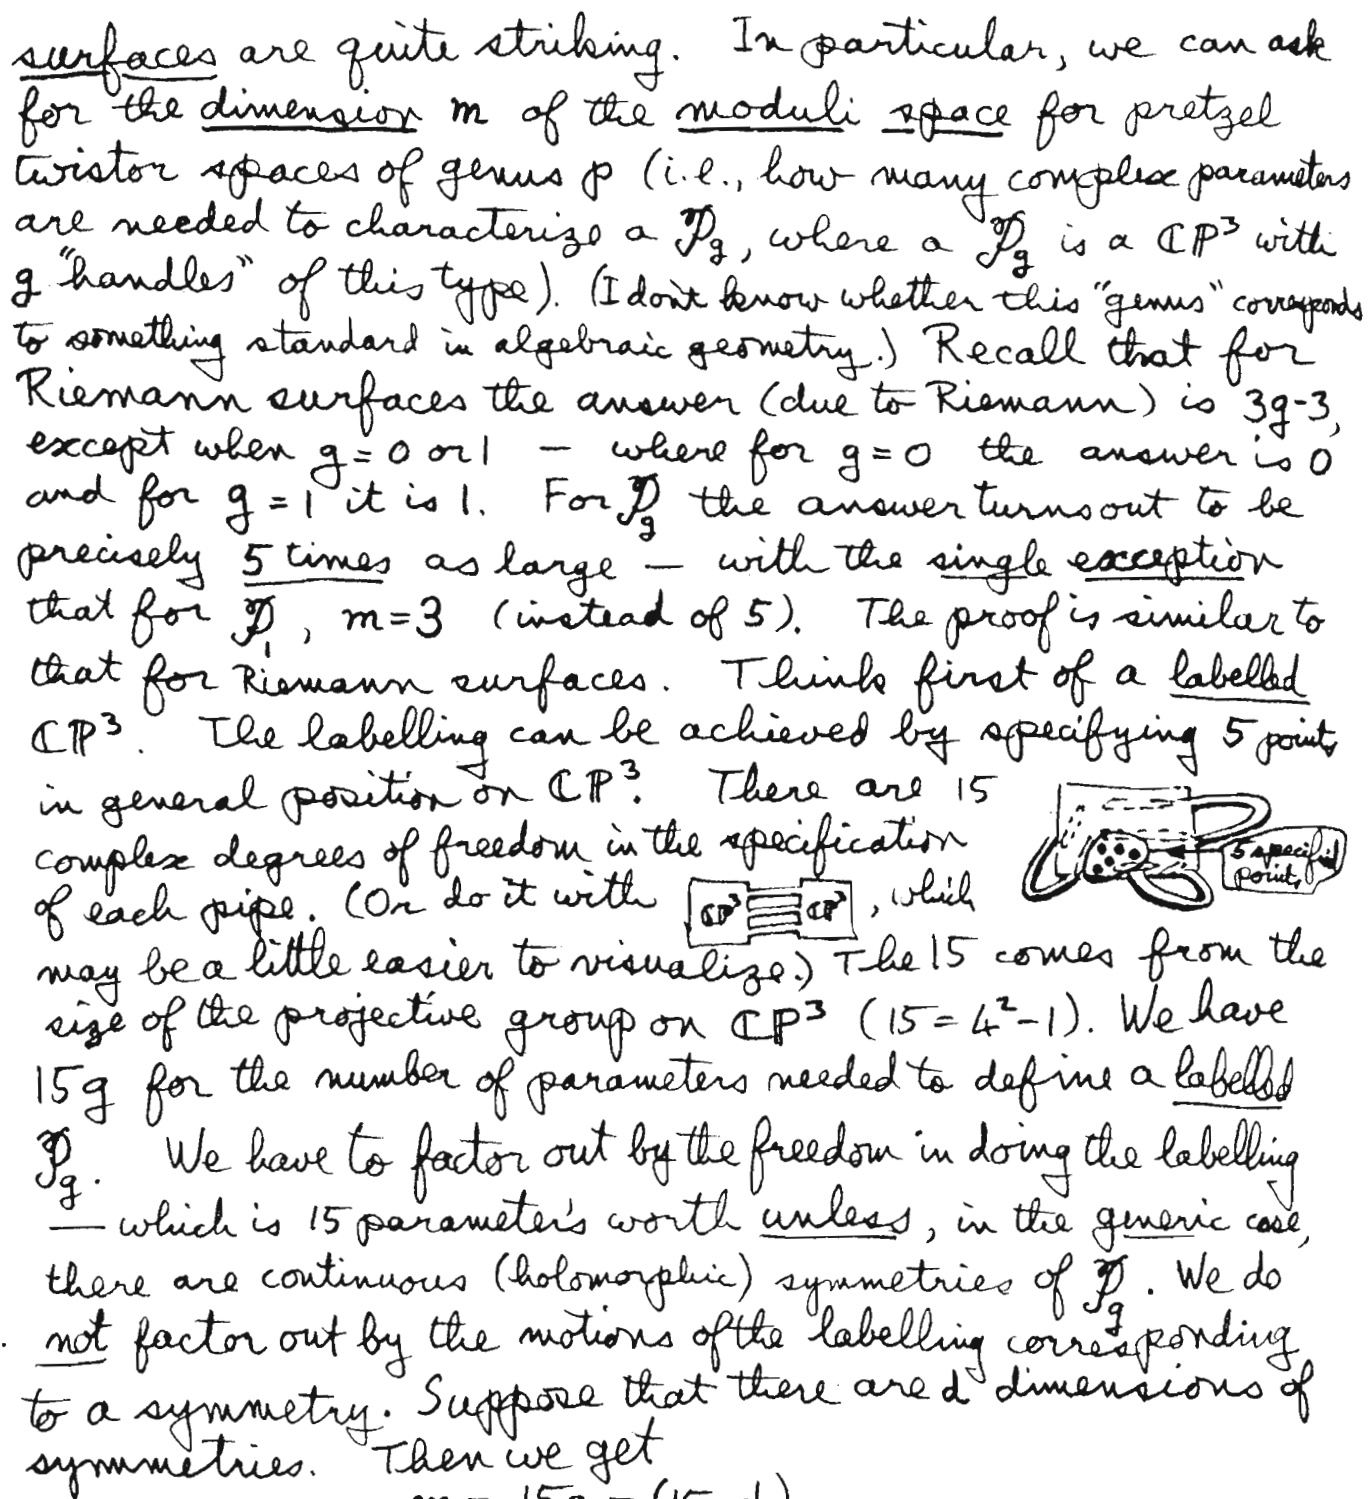 surfaces are quite striking. In particular, we can ask
for the dimension m of the moduli space for pretzel
twistor spaces of genus p (i.e., how many complex parameters
are needed to characterize a 𝒫g, where a 𝒫g is a ℂℙ³ with
g "handles" of this type). (I don't know whether this "genus" corresponds
to something standard in algebraic geometry.) Recall that for
Riemann surfaces the answer (due to Riemann) is 3g-3,
except when g=0 or 1 — where for g=0 the answer is 0
and for g=1 it is 1. For 𝒫g the answer turns out to be
precisely 5 times as large — with the single exception
that for 𝒫1, m=3 (instead of 5). The proof is similar to
that for Riemann surfaces. Think first of a labelled
ℂℙ³. The labelling can be achieved by specifying 5 points
in general position on ℂℙ³. There are 15
complex degrees of freedom in the specification
5 specified
points
of each pipe. (Or do it with ℂℙ³ ℂℙ³, which
may be a little easier to visualize.) The 15 comes from the
size of the projective group on ℂℙ³ (15=4²-1). We have
15g for the number of parameters needed to define a labelled
𝒫g. We have to factor out by the freedom in doing the labelling
— which is 15 parameter's worth unless, in the generic case,
there are continuous (holomorphic) symmetries of 𝒫g. We do
not factor out by the motions of the labelling corresponding
to a symmetry. Suppose that there are d dimensions of
symmetries. Then we get
m = 15g - (15-d)